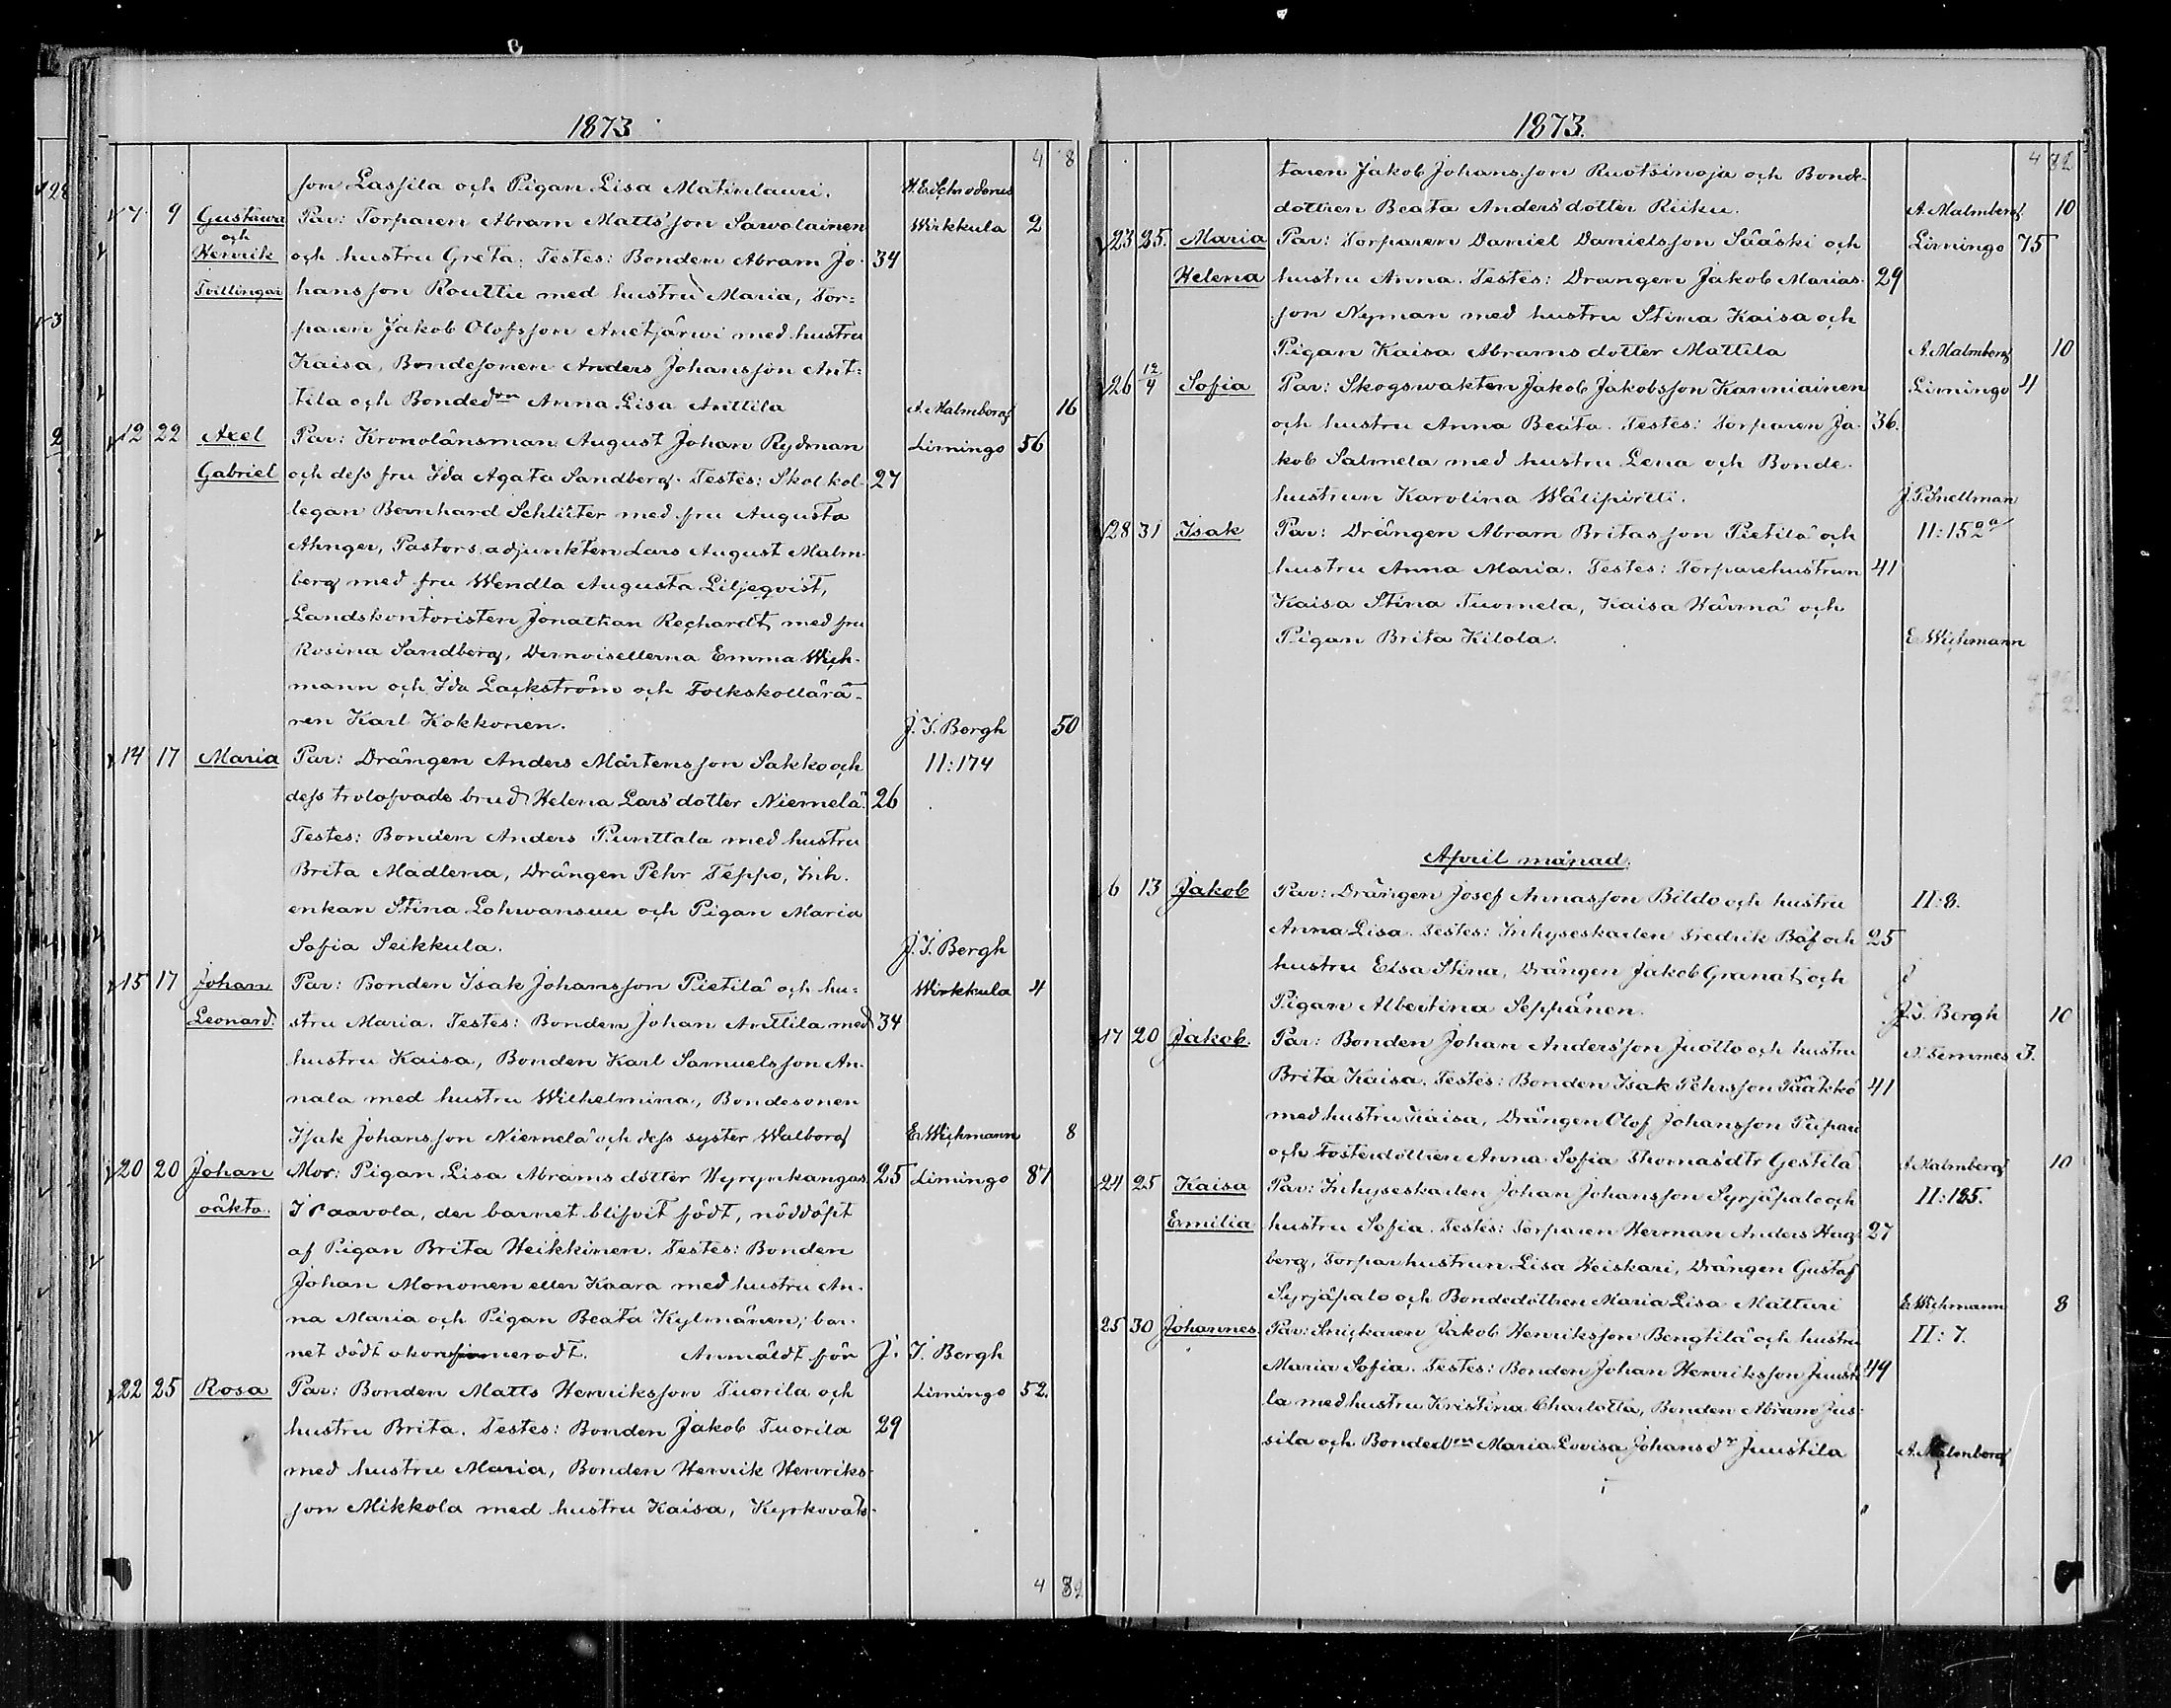 1873
4 8
son Lassila och Pigan Lisa Matinlauri. H. E. Schroderus
7 9 Gustava Par: Torparen Abram Mattsson Sawolainen Wirkkula 2
och
Henrik och hustru Greta. Testes: Bonden Abram Jo- 34
Tvillingar hansson Routtu med hustru Maria, Tor-
paren Jakob Olofsson Anetjärwi med hustru
Kaisa, Bondesonen Anders Johansson Ant-
tila och Bondedrn Anna Lisa Anttila A. Malmberg 16
12 22 Axel Par: Kronolänsman August Johan Rydman Limingo 56
Gabriel och dess fru Ida Agata Sandberg. Testes: Skolkol- 27
legan Bernhard Schlüter med fru Augusta
Ahnger, Pastors adjunkten Lars August Malm-
berg med fru Wendla Augusta Liljeqvist,
Landskontoristen Jonathan Rechardt med fru
Rosina Sandberg, Demoisellerna Emma Wich-
mann och Ida Lackström och Folkskollära-
ren Karl Kokkonen. J. F. Bergh 50
14 17 Maria Par: Drängen Anders Mårtensson Sakko och II: 174
dess trolofvade brud Helena Larsdotter Niemelä. 26
Testes: Bonden Anders Punttala med hustru
Brita Madlena, Drängen Pehr Teppo, Inh.
enkan Stina Lohwansuu och Pigan Maria
Sofia Seikkula. J. F. Bergh
15 17 Johan Par: Bonden Isak Johansson Pietilä och hu- Wirkkula 4
Leonard. stru Maria. Testes: Bonden Johan Anttila med 34
hustru Kaisa, Bonden Karl Samuelsson An-
nala med hustru Wilhelmina, Bondesonen
Isak Johansson Niemelä och dess syster Walborg E. Wichmann 8
20 20 Johan Mor: Pigan Lisa Abramsdotter Hyrynkangas 25 Limingo 87
oäkta. I Paavola, der barnet blifvit födt, nöddöpt
af Pigan Brita Heikkinen. Testes: Bonden
Johan Mononen eller Kaara med hustru An-
na Maria och Pigan Beata Kylmänen; bar-
net dödt okonfirmeradt. Anmäldt för J. F. Bergh
22 25 Rosa Par: Bonden Matts Henriksson Tuorila och Limingo 52.
hustru Brita. Testes: Bonden Jakob Tuorila 29
med hustru Maria, Bonden Henrik Henriks-
son Mikkola med hustru Kaisa, Kyrkovak-
4 82
1873.
4 82
taren Jakob Johansson Ruotsinoja och Bonde-
dottren Beata Andersdotter Riiku. A. Malmberg 10
23 25. Maria Par: Torparen Daniel Danielsson Sääski och Limingo 75
Helena hustru Anna. Testes: Drängen Jakob Marias- 29
son Nyman med hustru Stina Kaisa och
Pigan Kaisa Abramsdotter Mattila A. Malmberg 10
26 12/4 Sofia Par: Skogswakten Jakob Jakobsson Kanniainen Limingo 4
och hustru Anna Beata. Testes: Torparen Ja- 36.
kob Salmela med hustru Lena och Bonde-
hustrun Karolina Wälipirtti. J. P. Snellman
28 31 Isak Par: Drängen Abram Britasson Pietilä och II: 152a
hustru Anna Maria. Testes: Torparehustrun 41
Kaisa Stina Tuomela, Kaisa Härmä och
Pigan Brita Kilola. E. Wichmann
April månad.
6 13 Jakob Par: Drängen Josef Annasson Bildo och hustru II: 8.
Anna Lisa. Testes: Inhyseskarlen Fredrik Båf och 25
hustru Elsa Stina, Drängen Jakob Granat och
Pigan Albertina Seppänen. J. F. Bergh 10
17 20 Jakob. Par: Bonden Johan Andersson Juotto och hustru Temmes 3.
Brita Kaisa. Testes: Bonden Isak Pehrsson Pääkkö 41
med hustru Kaisa, Drängen Olof Johansson Piipari
och Fosterdottren Anna Sofia Thomasdtr Gestilä A. Malmberg 10
24 25 Kaisa Par: Inhyseskarlen Johan Johansson Syrjäpalo och II: 185.
Emilia hustru Sofia. Testes: Torparen Herman Anders Hag- 27
berg, Torparhustrun Lisa Heiskari, Drängen Gustaf
Syrjäpalo och Bondedottren Maria Lisa Matturi E. Wichmann 8
25 30 Johannes. Par: Snickaren Jakob Henriksson Bengtilä och hustru II: 7.
Maria Sofia. Testes: Bonden Johan Henriksson Juusti- 49
la med hustru Kristina Charlotta, Bonden Abram Jus-
sila och Bondedrn Maria Lovisa Johansdr Juustila A. Malmberg